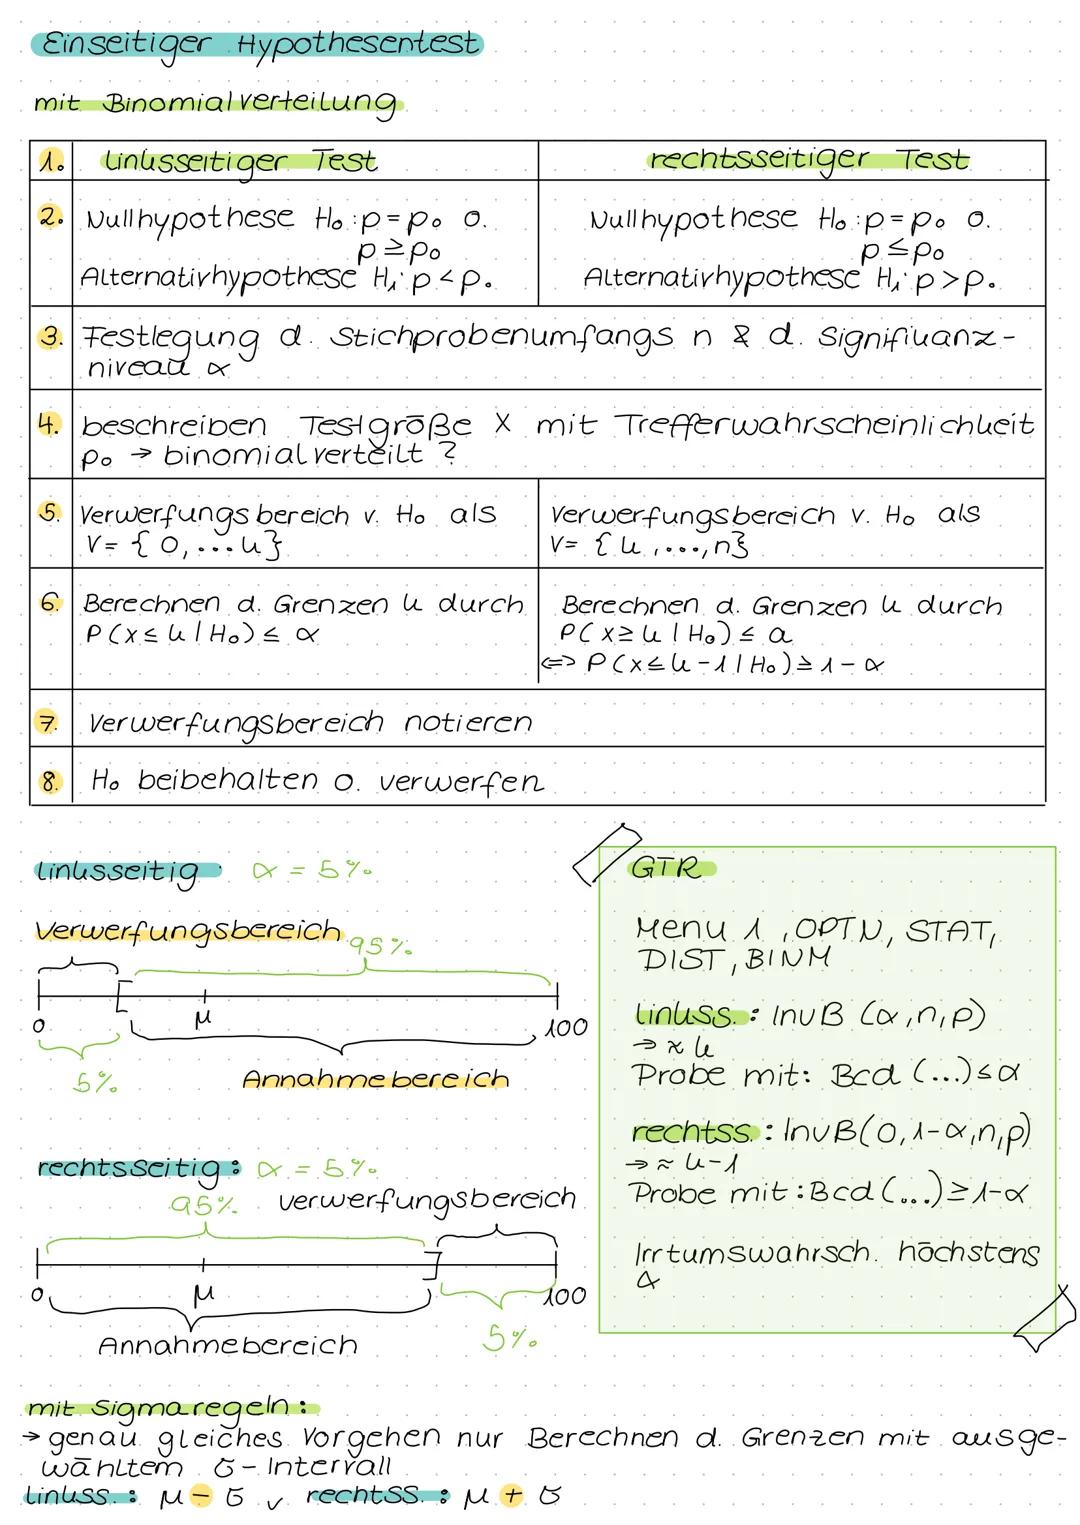 Einseitiger Hypothesentest
mit Binomialverteilung
1. linksseitiger Test
rechtsseitiger Test
2. Nullhypothese H₀: p = p₀ o.
p ≥ p₀
Alternativhypothese H₁: p < p₀
Nullhypothese H₀: p = p₀ o.
p ≤ p₀
Alternativhypothese H₁: p > p₀
3. Festlegung d. Stichprobenumfangs n & d. Signifikanz-
niveau α
4. beschreiben Testgröße X mit Trefferwahrscheinlichkeit
p₀ → binomialverteilt ?
5. Verwerfungsbereich v. H₀ als
V= { 0, ... k}
Verwerfungsbereich v. H₀ als
V= { k, ..., n}
6. Berechnen d. Grenzen k durch
P(X ≤ k | H₀) ≤ α
Berechnen d. Grenzen k durch
P(X ≥ k | H₀) ≤ α
<=> P(X ≤ k-1 | H₀) ≥ 1-α
7. Verwerfungsbereich notieren
8. H₀ beibehalten o. verwerfen
linksseitig α = 5%
Verwerfungsbereich 95%
0 μ 100
5% Annahmebereich
rechtsseitig: α = 5%
95% Verwerfungsbereich
0 μ 100
Annahmebereich 5%
GTR
Menu 1, OPTN, STAT,
DIST, BINM
linkss.: InvB (α,n,p)
→ ≈ k
Probe mit: Bcd (...) ≤ α
rechtss.: InvB(0,1-α,n,p)
→ ≈ k-1
Probe mit: Bcd (...) ≥ 1-α
Irrtumswahrsch. höchstens
α
mit Sigmaregeln:
→ genau gleiches Vorgehen nur Berechnen d. Grenzen mit ausge-
wähltem σ-Intervall
linkss.: μ - σ v rechtss.: μ + σ